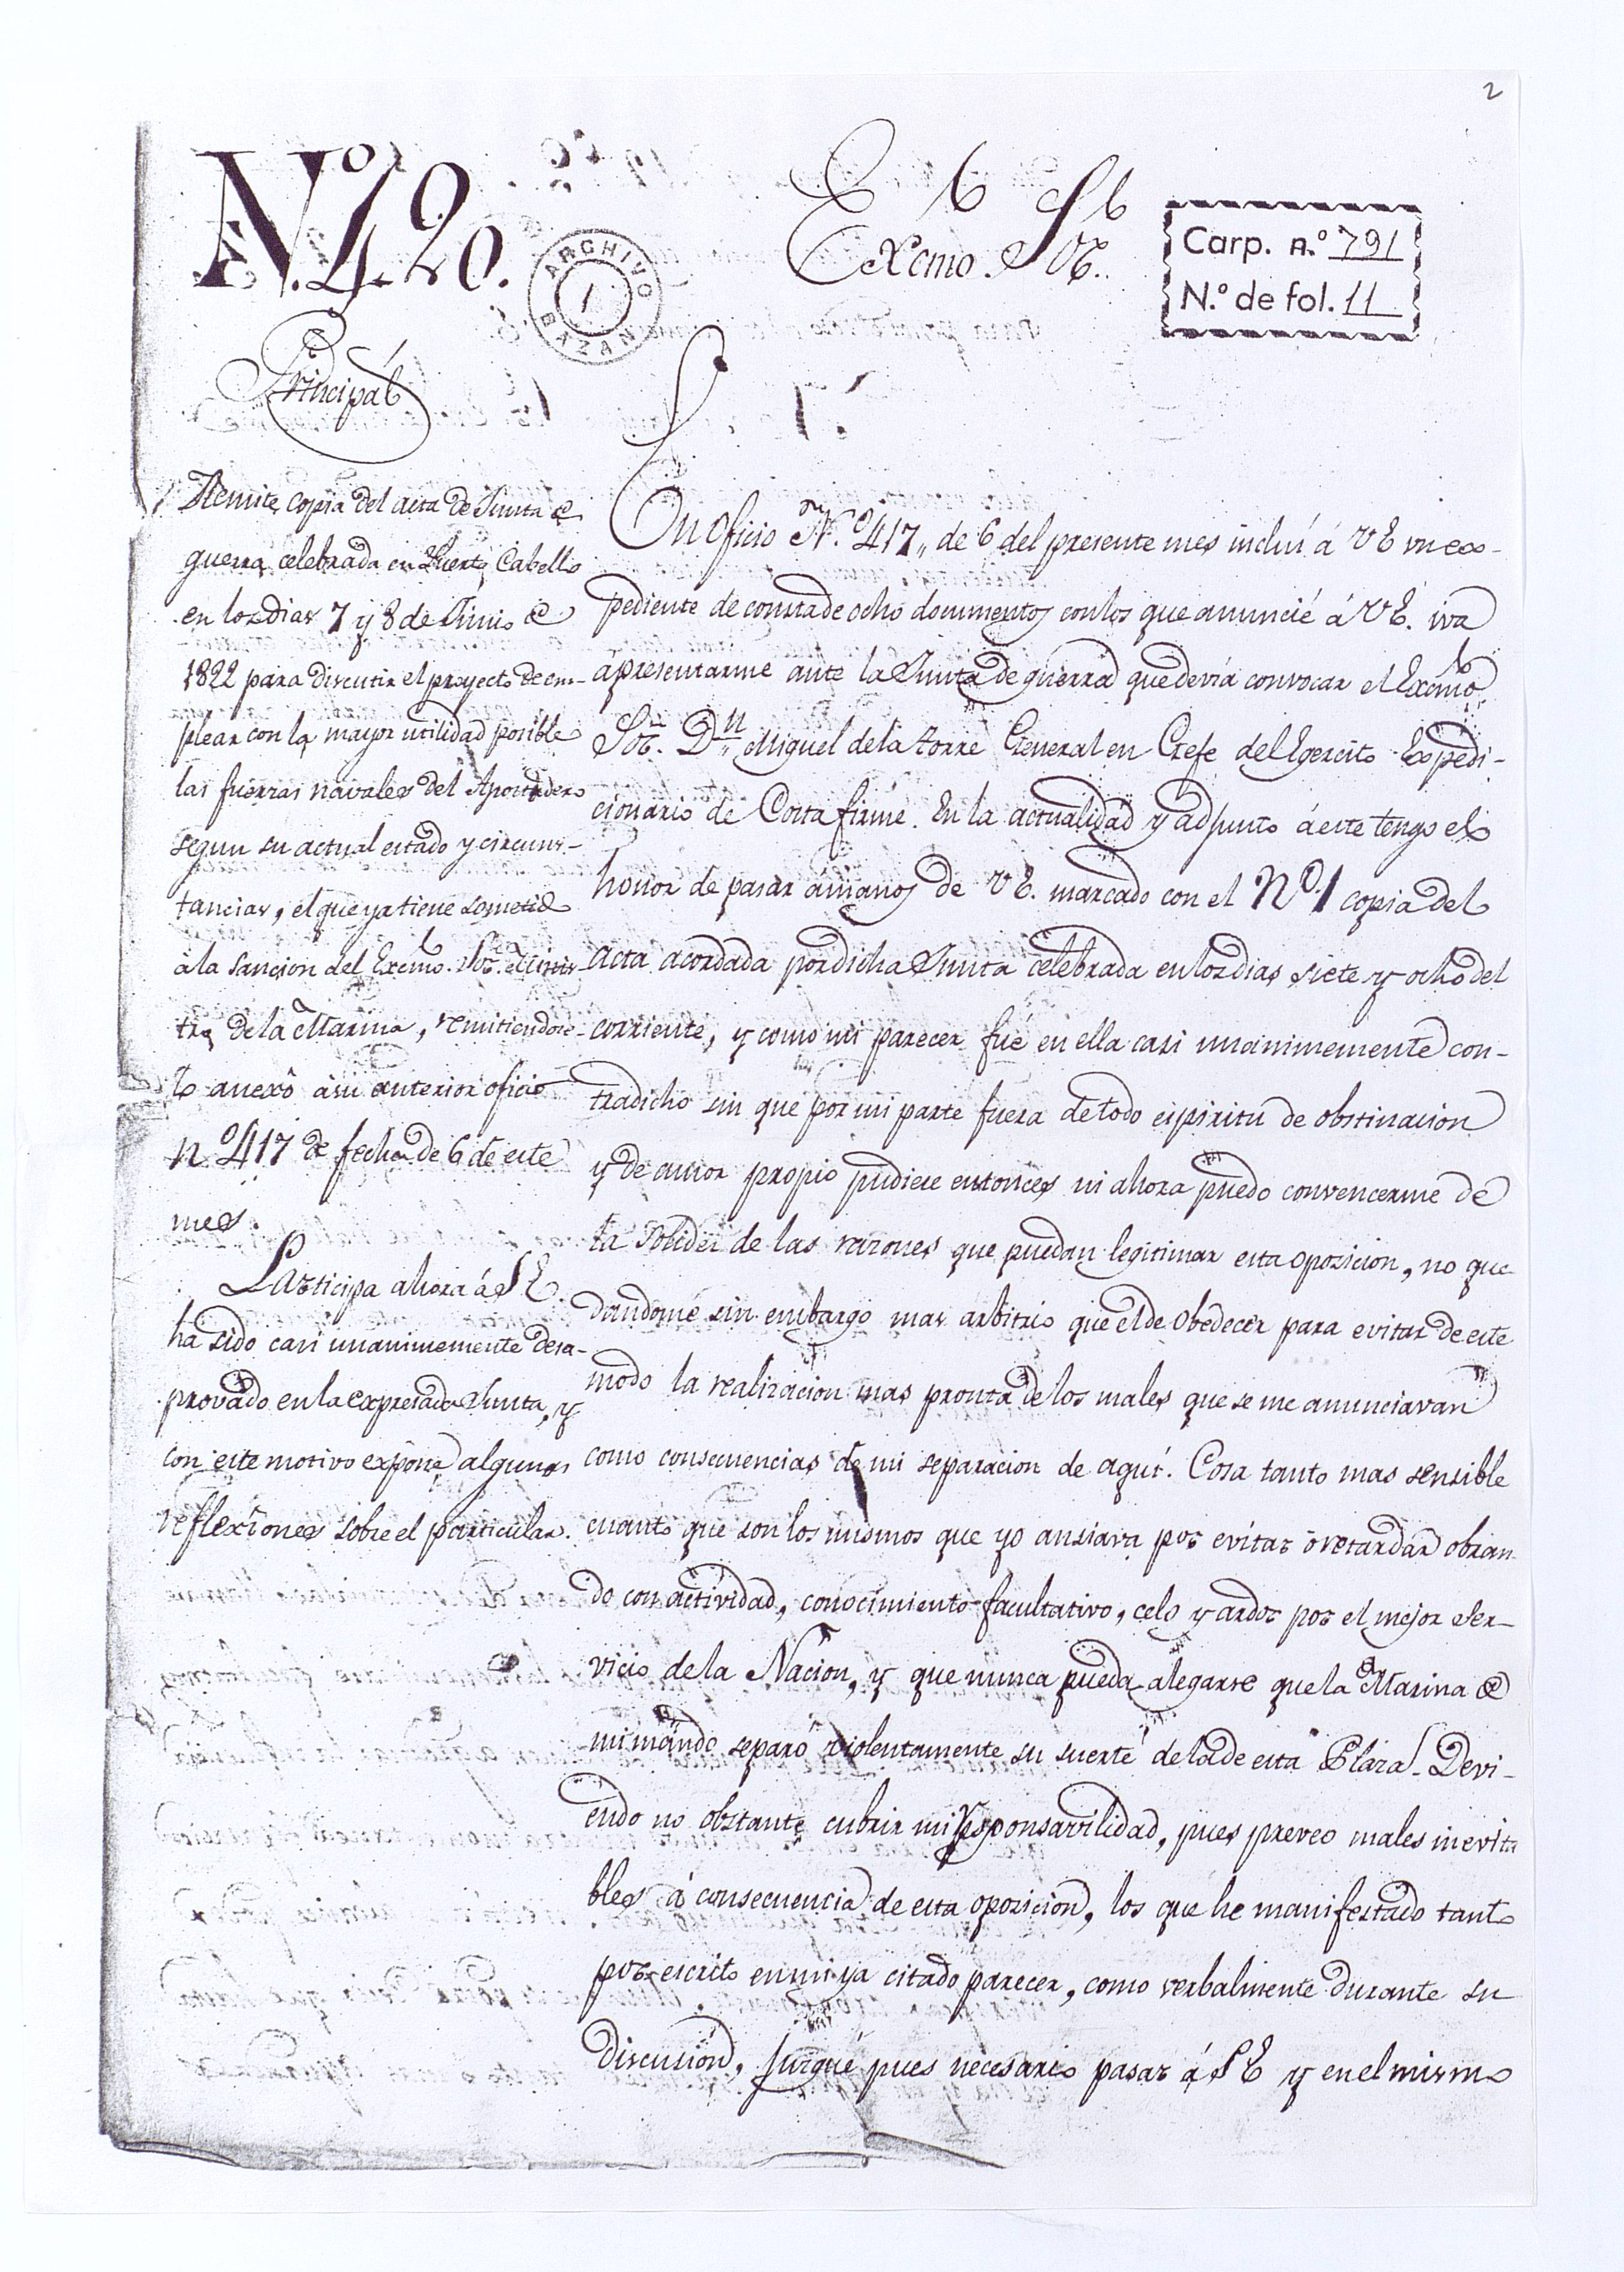 2
N.º 420.
Excmo. Sor.
Carp. n.º 791
N.º de fol. 11
ARCHIVO BAZAN
1
Principal
Remite copia del acta de Junta de
guerra celebrada en Puerto Cabello
en los dias 7 y 8 de Junio de
1822 para discutir el proyecto de em-
plear con la mayor utilidad posible
las fuerzas navales del Apostadero
segun su actual estado y circuns-
tancias, el que ya tiene sometido
a la sancion del Excmo. Sor. Minis-
tro de la Marina, remitiendose-
lo anexô à su anterior oficio
nº 417 de fecha de 6 de este
mes.
Participa ahora á S E.
ha sido casi unanimemente desa-
provado en la expresada Junta, y
con este motivo expone algunas
reflexiones sobre el particular.
En oficio N.º 417,, de 6 del presente mes incluí á V E un ex-
pediente de consta de ocho documentos con los que anuncié á V E. iva
a presentarme ante la Junta de guerra que devía convocar el Excmo
Sor. Dn. Miguel de la Torre General en Gefe del Egercito Expedi-
cionario de Costa firme. En la actualidad y adjunto á este tengo el
honor de pasar á manos de V E. marcado con el Nº. 1 copia del
Acta acordada por dicha Junta celebrada en los dias siete y ocho del
corriente, y como mi parecer fué en ella casi unanimemente con-
tradicho sin que por mi parte fuera de todo espiritu de obstinacion
y de amor propio pudiese entonces ni ahora puedo convencerme de
la solidez de las razones que puedan legitimar esta oposicion, no que
dandome sin embargo mas arbitrio que el de obedecer para evitar de este
modo la realizacion mas pronta de los males que se me anunciavan
como consecuencias de mi separacion de aquí. Cosa tanto mas sensible
cuanto que son los mismos que yo ansiava por evitar ó retardar obran-
do con actividad, conocimiento facultativo, celo y ardor por el mejor ser-
vicio de la Nacion, y que nunca pueda alegarse que la Marina de
mi mando separó violentamente su suerte de la de esta Plaza. Devi-
endo no obstante cubrir mi responsavilidad, pues preveo males inevita
bles á consecuencia de esta oposicion, los que he manifestado tanto
por escrito en mi ya citado parecer, como verbalmente durante su
discusion, jusgué pues necesario pasar á S E y en el mismo